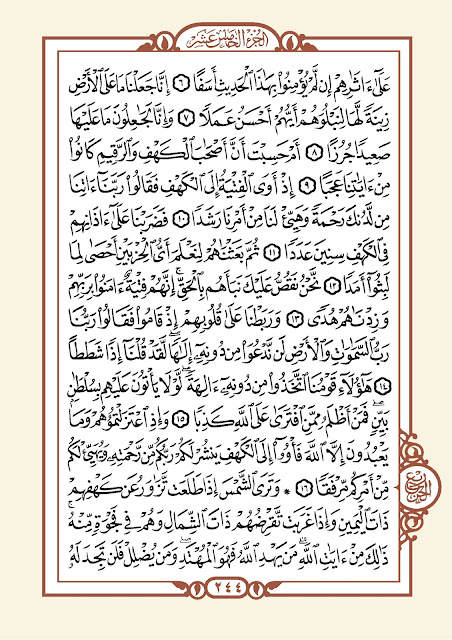 الجزء الخامس عشر
عَلَىٰٓ ءَاثَٰرِهِمْ إِن لَّمْ يُؤْمِنُوا۟ بِهَٰذَا ٱلْحَدِيثِ أَسَفًا ٦ إِنَّا جَعَلْنَا مَا عَلَى ٱلْأَرْضِ
زِينَةً لَّهَا لِنَبْلُوَهُمْ أَيُّهُمْ أَحْسَنُ عَمَلًا ٧ وَإِنَّا لَجَٰعِلُونَ مَا عَلَيْهَا
صَعِيدًا جُرُزًا ٨ أَمْ حَسِبْتَ أَنَّ أَصْحَٰبَ ٱلْكَهْفِ وَٱلرَّقِيمِ كَانُوا۟
مِنْ ءَايَٰتِنَا عَجَبًا ٩ إِذْ أَوَى ٱلْفِتْيَةُ إِلَى ٱلْكَهْفِ فَقَالُوا۟ رَبَّنَآ ءَاتِنَا
مِن لَّدُنكَ رَحْمَةً وَهَيِّئْ لَنَا مِنْ أَمْرِنَا رَشَدًا ١٠ فَضَرَبْنَا عَلَىٰٓ ءَاذَانِهِمْ
فِى ٱلْكَهْفِ سِنِينَ عَدَدًا ١١ ثُمَّ بَعَثْنَٰهُمْ لِنَعْلَمَ أَىُّ ٱلْحِزْبَيْنِ أَحْصَىٰ لِمَا
لَبِثُوٓا۟ أَمَدًا ١٢ نَّحْنُ نَقُصُّ عَلَيْكَ نَبَأَهُم بِٱلْحَقِّ ۚ إِنَّهُمْ فِتْيَةٌ ءَامَنُوا۟ بِرَبِّهِمْ
وَزِدْنَٰهُمْ هُدًى ١٣ وَرَبَطْنَا عَلَىٰ قُلُوبِهِمْ إِذْ قَامُوا۟ فَقَالُوا۟ رَبُّنَا
رَبُّ ٱلسَّمَٰوَٰتِ وَٱلْأَرْضِ لَن نَّدْعُوَا۟ مِن دُونِهِۦٓ إِلَٰهًا ۖ لَّقَدْ قُلْنَآ إِذًا شَطَطًا
١٤ هَٰٓؤُلَآءِ قَوْمُنَا ٱتَّخَذُوا۟ مِن دُونِهِۦٓ ءَالِهَةً ۖ لَّوْلَا يَأْتُونَ عَلَيْهِم بِسُلْطَٰنٍۭ
بَيِّنٍ ۖ فَمَنْ أَظْلَمُ مِمَّنِ ٱفْتَرَىٰ عَلَى ٱللَّهِ كَذِبًا ١٥ وَإِذِ ٱعْتَزَلْتُمُوهُمْ وَمَا
يَعْبُدُونَ إِلَّا ٱللَّهَ فَأْوُۥٓا۟ إِلَى ٱلْكَهْفِ يَنشُرْ لَكُمْ رَبُّكُم مِّن رَّحْمَتِهِۦ وَيُهَيِّئْ لَكُم
مِّنْ أَمْرِكُم مِّرْفَقًا ١٦ ۞ وَتَرَى ٱلشَّمْسَ إِذَا طَلَعَت تَّزَٰوَرُ عَن كَهْفِهِمْ
ذَاتَ ٱلْيَمِينِ وَإِذَا غَرَبَت تَّقْرِضُهُمْ ذَاتَ ٱلشِّمَالِ وَهُمْ فِى فَجْوَةٍ مِّنْهُ ۚ
ذَٰلِكَ مِنْ ءَايَٰتِ ٱللَّهِ ۗ مَن يَهْدِ ٱللَّهُ فَهُوَ ٱلْمُهْتَدِ ۖ وَمَن يُضْلِلْ فَلَن تَجِدَ لَهُۥ
٢٤٤